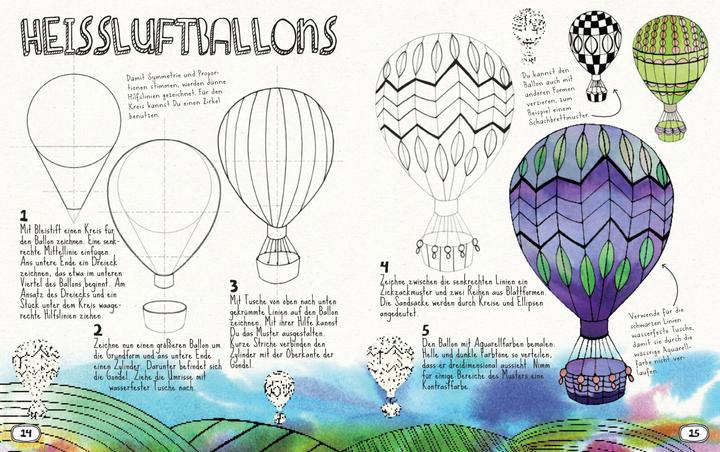 HEISSLUFTBALLONS
Damit Symmetrie und Propor-
tionen stimmen, werden dünne
Hilfslinien gezeichnet. Für den
Kreis kannst Du einen Zirkel
benutzen.
1
Mit Bleistift einen Kreis für
den Ballon zeichnen. Eine senk-
rechte Mittellinie einfügen.
Ans untere Ende ein Dreieck
zeichnen, das etwa im unteren
Viertel des Ballons beginnt. Am
Ansatz des Dreiecks und ein
Stück unter dem Kreis waage-
rechte Hilfslinien ziehen.
2
Zeichne nun einen größeren Ballon um
die Grundform und ans untere Ende
einen Zylinder. Darunter befindet sich
die Gondel. Ziehe die Umrisse mit
wasserfester Tusche nach.
3
Mit Tusche von oben nach unten
gekrümmte Linien auf den Ballon
zeichnen. Mit ihrer Hilfe kannst
Du das Muster ausgestalten.
Kurze Striche verbinden den
Zylinder mit der Oberkante der
Gondel.
14
Du kannst den
Ballon auch mit
anderen Formen
verzieren, zum
Beispiel einem
Schachbrettmuster.
4
Zeichne zwischen die senkrechten Linien ein
Zickzackmuster und zwei Reihen aus Blattformen.
Die Sandsäcke werden durch Kreise und Ellipsen
angedeutet.
5
Den Ballon mit Aquarellfarben bemalen.
Helle und dunkle Farbtöne so verteilen,
dass er dreidimensional aussieht. Nimm
für einige Bereiche des Musters eine
Kontrastfarbe.
Verwende für die
schwarzen Linien
wasserfeste Tusche,
damit sie durch die
wässrige Aquarell-
farbe nicht ver-
laufen.
15